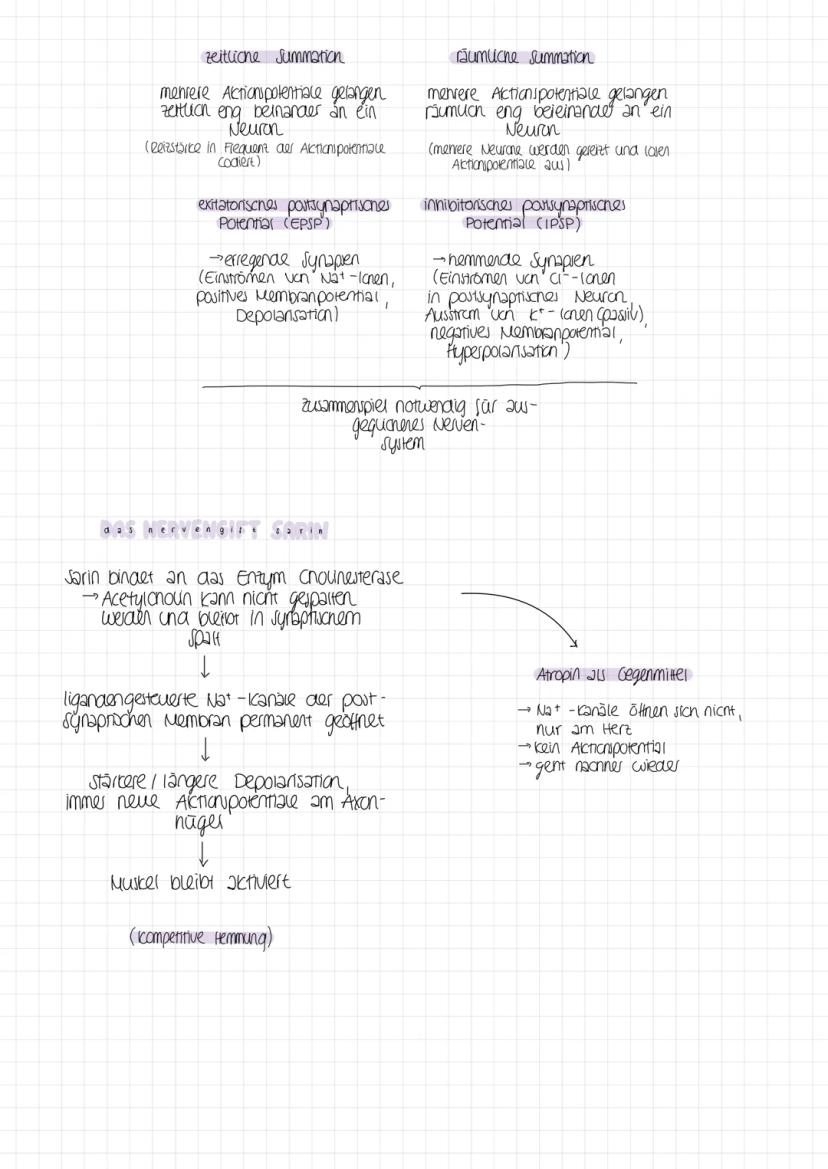 zeitliche Summation
mehrere Aktionspotentiale gelangen
zeitlich eng beinander an ein
Neuron
(Reizstärke in Frequenz der Aktionspotentiale
codiert)
räumliche Summation
mehrere Aktionspotentiale gelangen
räumlich eng beieinander an ein
Neuron
(mehrere Neurone werden gereizt und lösen
Aktionspotentiale aus)
exitatorisches postsynaptisches
Potential (EPSP)
→ erregende Synapsen
(Einströmen von Na⁺-Ionen,
positives Membranpotential,
Depolarisation)
inhibitorisches postsynaptisches
Potential (IPSP)
→ hemmende Synapsen
(Einströmen von Cl⁻-Ionen
in postsynaptisches Neuron,
Ausstrom von K⁺-Ionen (passiv),
negatives Membranpotential,
Hyperpolarisation)
Zusammenspiel notwendig für aus-
geglichenes Nerven-
system
DAS NERVENGIFT SARIN
das nervengift sarin
Sarin bindet an das Enzym Cholinesterase
→ Acetylcholin kann nicht gespalten
werden und bleibt in synaptischem
Spalt
↓
ligandengesteuerte Na⁺-Kanäle der post-
synaptischen Membran permanent geöffnet
↓
stärkere / längere Depolarisation,
immer neue Aktionspotentiale am Axon-
hügel
↓
Muskel bleibt aktiviert
(kompetitive Hemmung)
Atropin als Gegenmittel
→ Na⁺-Kanäle öffnen sich nicht,
nur am Herz
→ kein Aktionspotential
→ geht nachher wieder